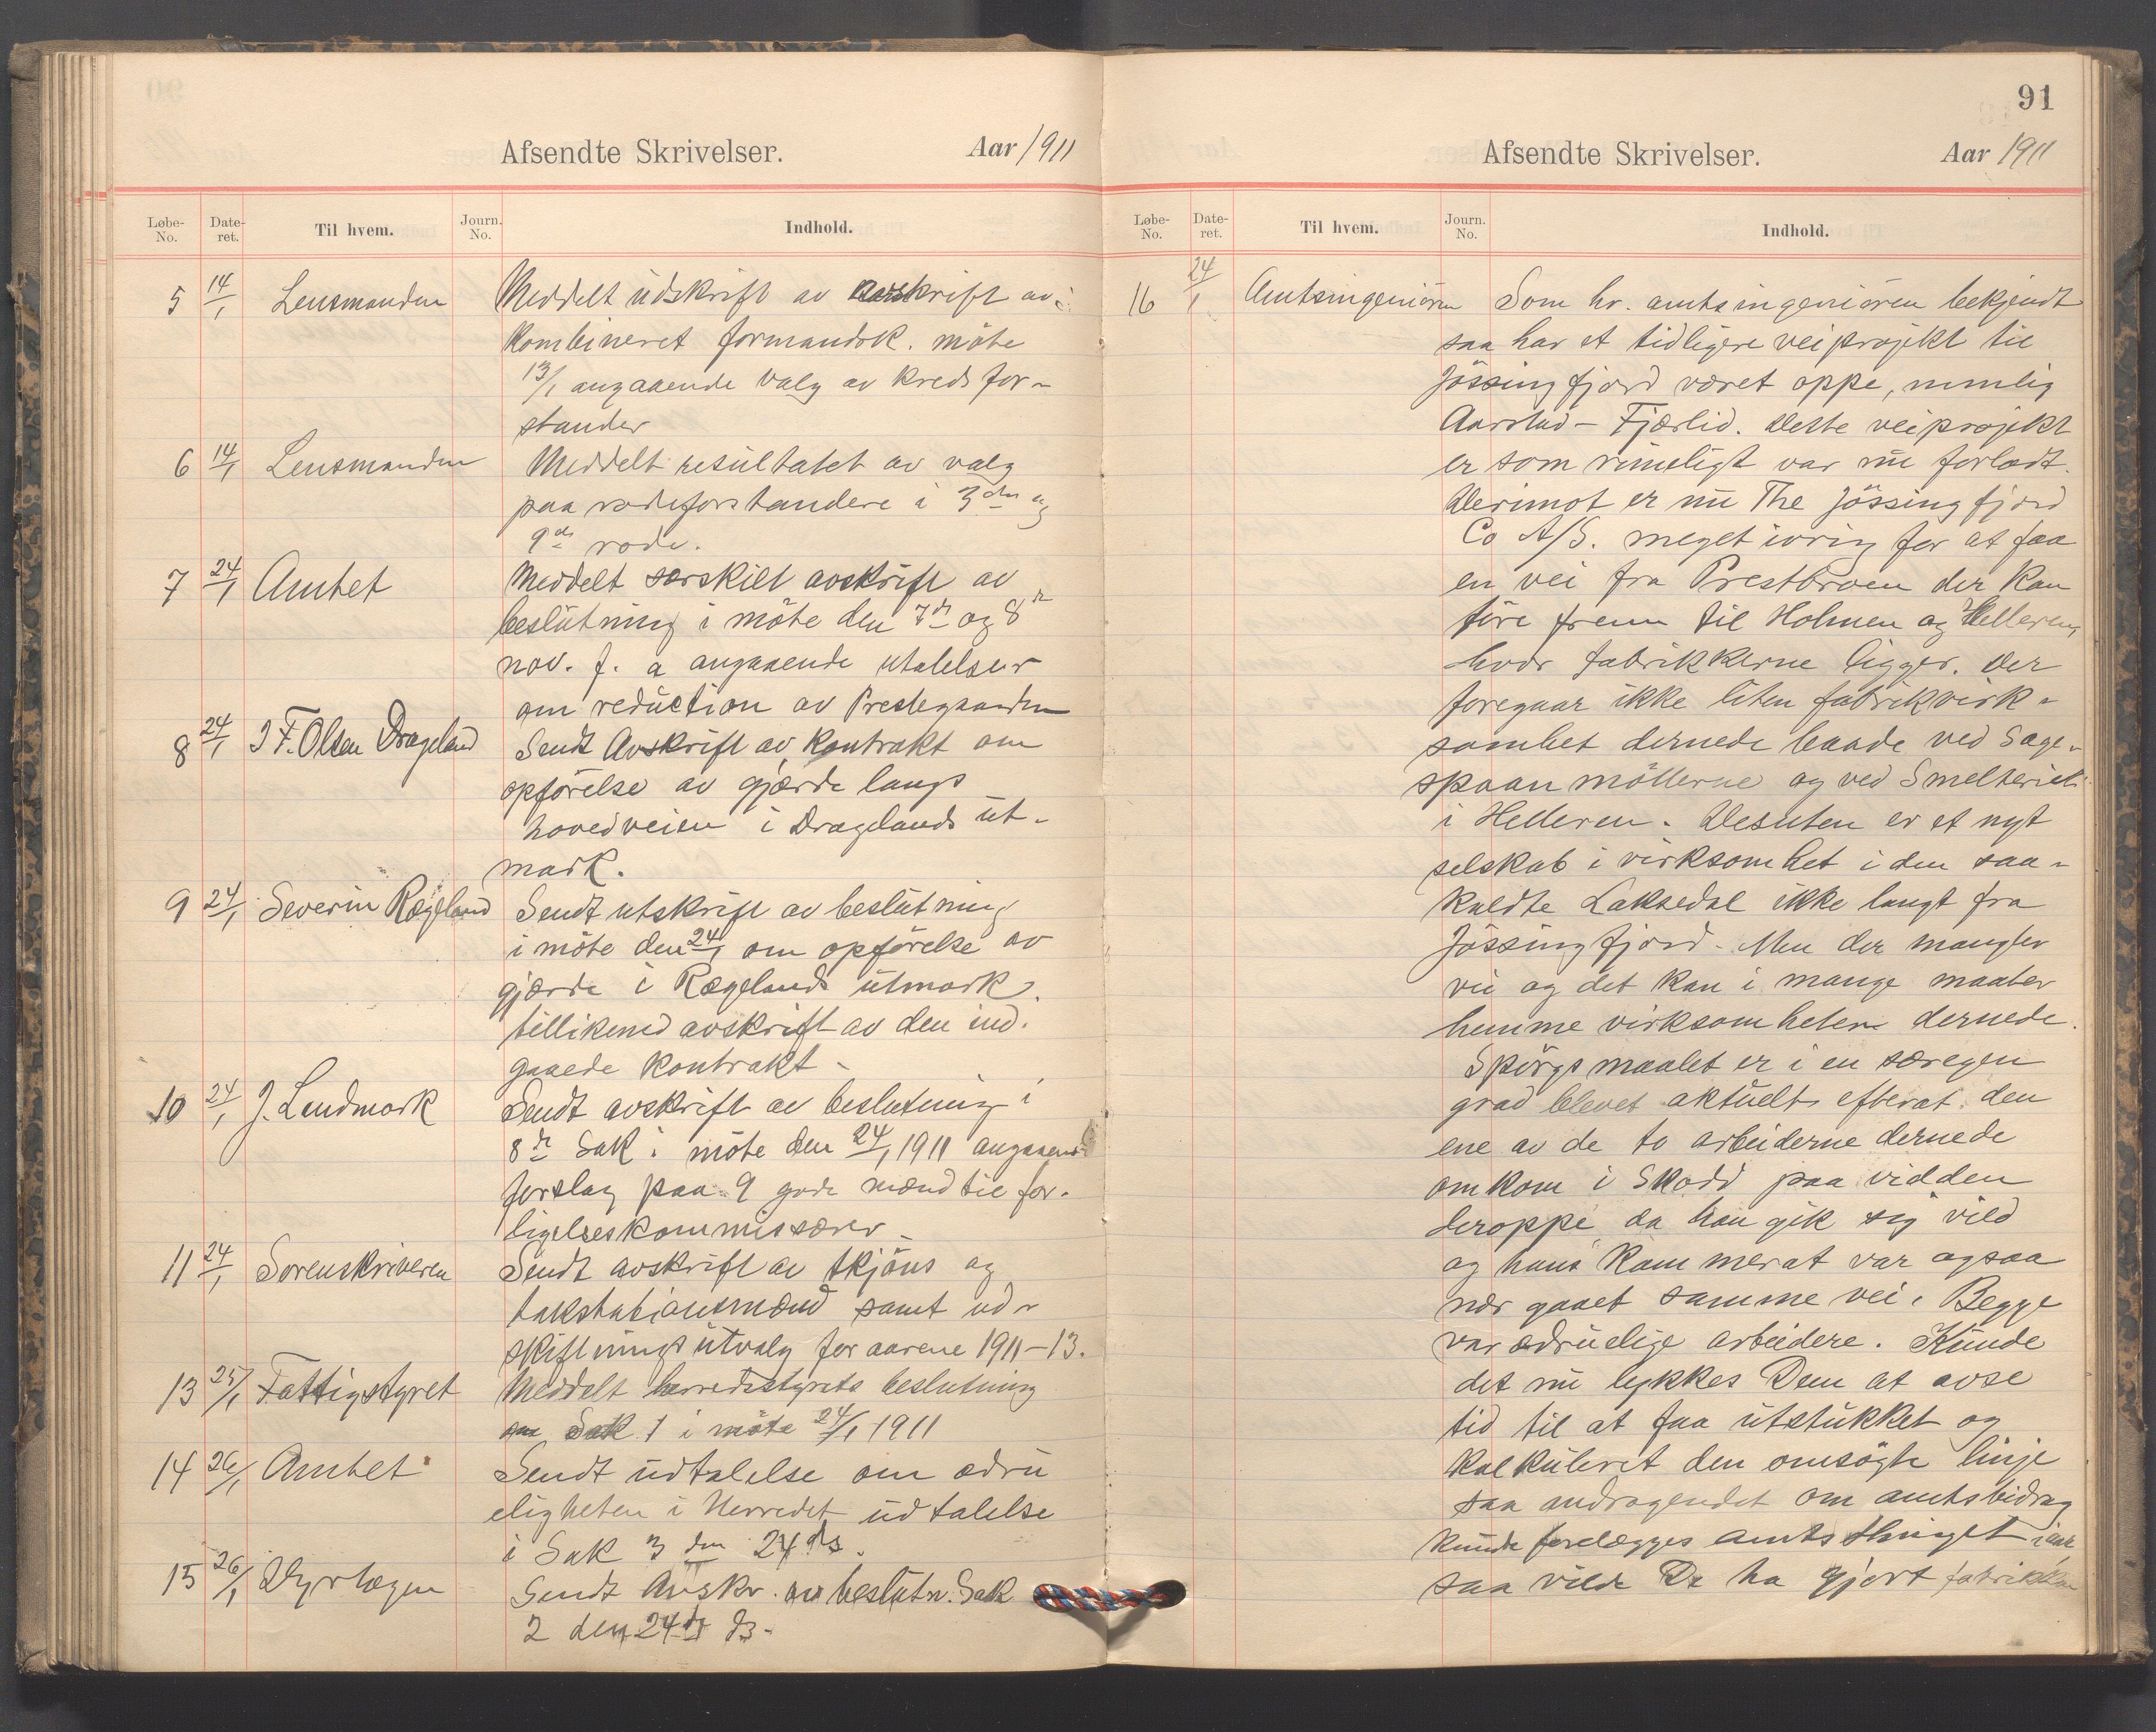 Afsendte Skrivelser. Aar 1911
Løbe-No. Date-ret. Til hvem. Journ. No. Indhold.
5 14/1 Lensmanden Meddelt udskrift av avskrift av
kombineret formandsk. möte
13/1 angaaende valg av kredsfor-
stander
6 14/1 Lensmanden Meddelt resultatet av valg
paa rodeforstandere i 3die og
9de rode.
7 24/1 Amtet Meddelt særskilt avskrift av
beslutning i möte den 7de og 8de
nov. f. a angaaende utalelser
om reduction av Prestegaarden
8 24/1 I F. Olsen Drageland Sendt Avskrift av kontrakt om
opförelse av gjærde langs
hovedveien i Dragelands ut-
mark.
9 24/1 Severin Rægeland Sendt utskrift av beslutning
i möte den 24/1 om opförelse av
gjærde i Rægelands utmark.
tillikemed avskrift av den ind-
gaaede kontrakt -
10 24/1 J. Lendmark Sendt avskrift av beslutning i
8de Sak i möte den 24/1 1911 angaaende
forslag paa 9 gode mænd til for-
ligelseskommissærer -
11 24/1 Sorenskriveren Sendt avskrift av skjöns og
takstationsmænd samt ud-
skiftnings utvalg for aarene 1911-13.
13 25/1 Fattigstyret Meddelt herredsstyrets beslutning
Sak 1 i möte 24/1 1911
14 26/1 Amtet Sendt udtalelse om ædru
eligheten i Herredet udtalelse
i Sak 3 den 24ds.
15 26/1 Dyrlægen Sendt Avskr. av beslutn. Sak
2 den 24de ds-
91
Afsendte Skrivelser. Aar 1911
Løbe-No. Date-ret. Til hvem. Journ. No. Indhold.
16 24/1 Amtsingeniören Som hr. amtsingeniören bekjendt
saa har et tidligere veiprojekt til
Jössingfjord været oppe, nemlig
Aarstad - Fjærlid. Dette veiprojekt
er som rimeligt var nu forladt.
Derimot er nu The Jössingfjord
Co A/S. meget ivrig for at faa
en vei fra Prestbroen der kan
före frem til Holmen og Helleren,
hvor fabrikkerne ligger. Der
foregaar ikke liten fabrikvirk-
somhet dernede baade ved Sage-
spaan möllerne og ved Smelteriet
i Helleren. Desuten er et nyt
selskab i virksomhet i den saa-
kaldte Laksedal ikke langt fra
Jössingfjord. Men der mangler
vei og det kan i mange maater
hemme virksomheten dernede.
Spörgsmaalet er i en særegen
grad blevet aktuelt efterat den
ene av de to arbeiderne dernede
omkom i Skodd paa vidden
deroppe da han gik sig vild
og hans kammerat var ogsaa
nær gaaet samme vei. Begge
var ædruelige arbeidere. Kunde
det nu lykkes Dem at avse
tid til at faa utstukket og
kalkuleret den omsögte linje
saa andragendet om amtsbidrag
kunde forelægges amtsthinget i aar
saa vilde De ha gjort fabrikken